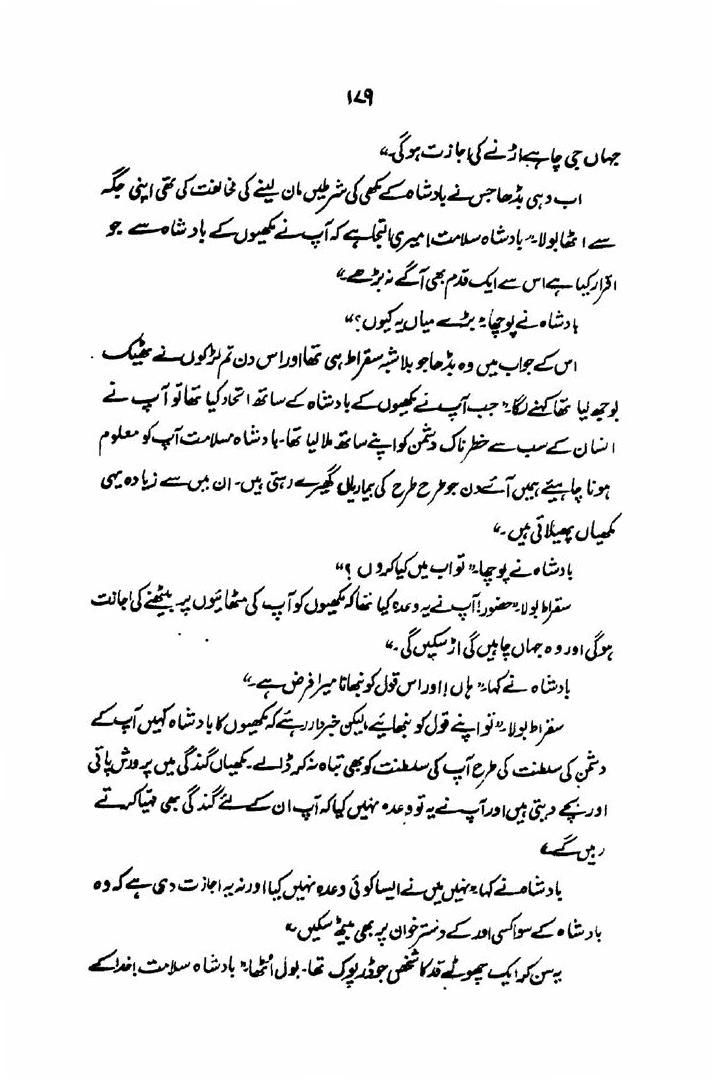 ۱۷۹
جہاں جی چاہے اڑنے کی اجازت ہوگی۔“
اب وہی بڈھا جس نے بادشاہ کے مکھی کی شرطیں مان لینے کی مخالفت کی تھی اپنی جگہ
سے اٹھا بولا۔”بادشاہ سلامت! میری التجا ہے کہ آپ نے مکھیوں کے بادشاہ سے جو
اقرار کیا ہے اس سے ایک قدم بھی آگے نہ بڑھے۔“
بادشاہ نے پوچھا۔”بڑے میاں یہ کیوں؟“
اس کے جواب میں وہ بڈھا جو بلا شبہ سقراط ہی تھا اور اس دن تم لڑکوں نے ٹھیک
بوجھ لیا تھا کہنے لگا۔”جب آپ نے مکھیوں کے بادشاہ کے ساتھ اتحاد کیا تھا تو آپ نے
انسان کے سب سے خطرناک دشمن کو اپنے ساتھ ملا لیا تھا۔ بادشاہ سلامت آپ کو معلوم
ہونا چاہیئے ہمیں آئے دن جو طرح طرح کی بیماریاں گھیرے رہتی ہیں۔ ان میں سے زیادہ یہی
مکھیاں پھیلاتی ہیں۔“
بادشاہ نے پوچھا۔”تو اب میں کیا کروں؟“
سقراط بولا۔”حضور! آپ نے یہ وعدہ کیا تھا کہ مکھیوں کو آپ کی مٹھائیوں پر بیٹھنے کی اجازت
ہوگی اور وہ جہاں چاہیں گی اڑ سکیں گی۔“
بادشاہ نے کہا۔”ہاں! اور اس قول کو نبھانا میرا فرض ہے۔“
سقراط بولا۔”تو اپنے قول کو نبھائیے لیکن خبردار رہئے کہ مکھیوں کا بادشاہ کہیں آپ کے
دشمن کی سلطنت کی طرح آپ کی سلطنت کو بھی تباہ نہ کر ڈالے۔ مکھیاں گندگی میں پرورش پاتی
اور بچے دیتی ہیں اور آپ نے یہ تو وعدہ نہیں کیا کہ آپ ان کے لئے گندگی بھی مہیا کرتے
رہیں گے۔“
بادشاہ نے کہا۔”نہیں میں نے ایسا کوئی وعدہ نہیں کیا اور نہ یہ اجازت دی ہے کہ وہ
بادشاہ کے سوا کسی اور کے دسترخوان پر بھی بیٹھ سکیں۔“
یہ سن کر ایک چھوٹے قد کا شخص جو ڈرپوک تھا۔ بول اٹھا۔”بادشاہ سلامت! خدا کے